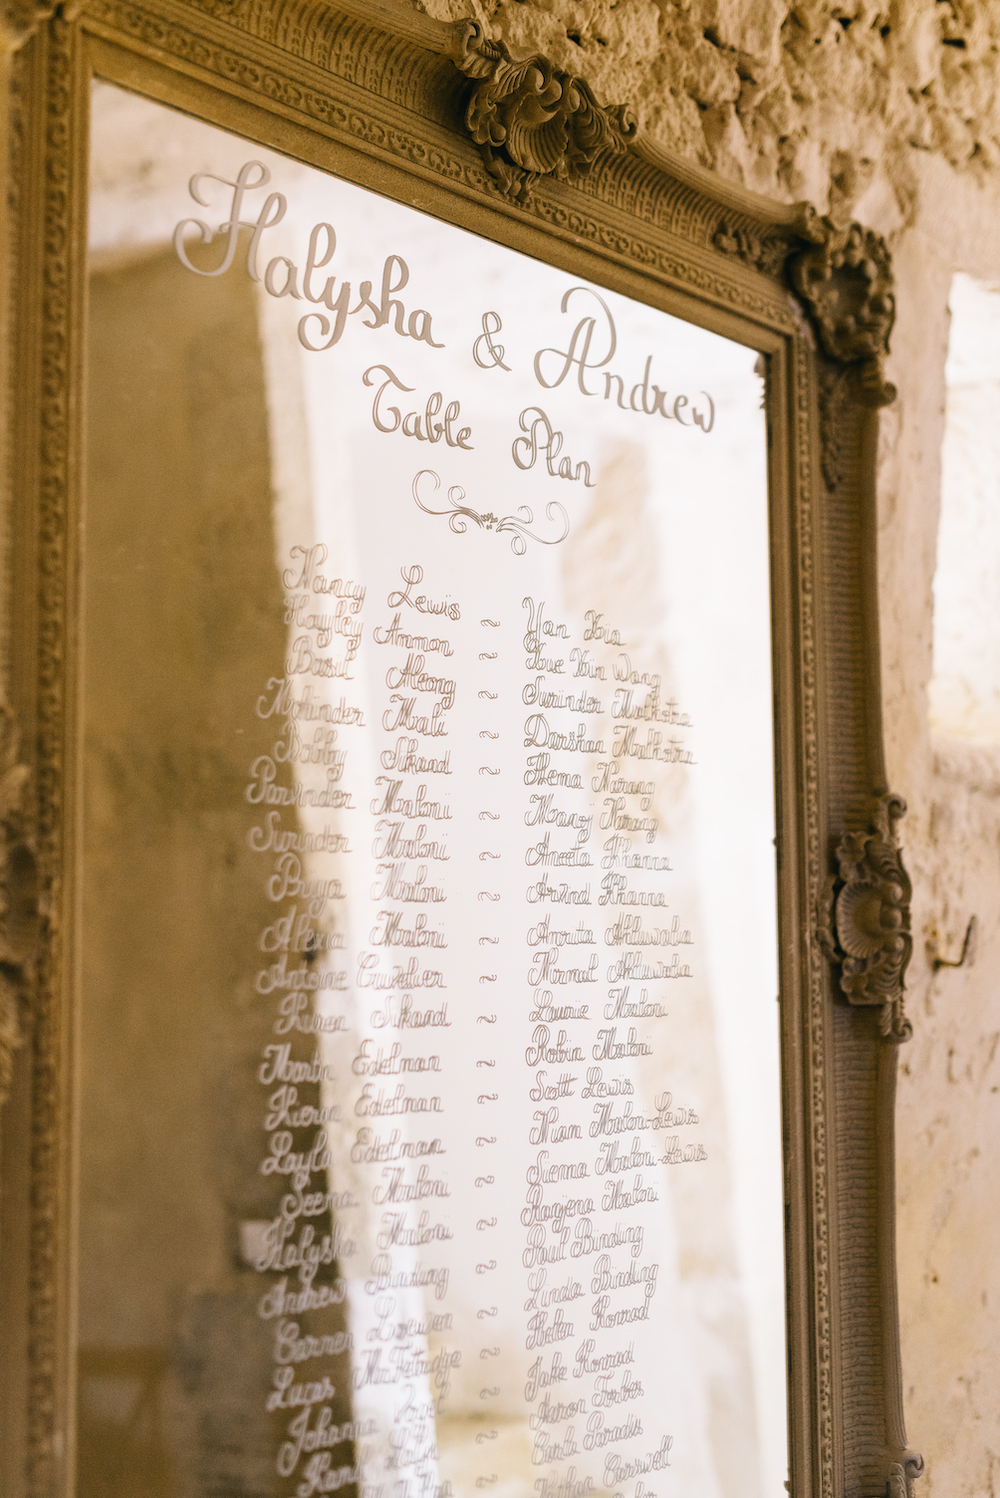 Halysha & Andrew
Table Plan
Nancy Lewis ~ Yan Xin
Hayley Ammon ~ Xue Xin Wong
Basil Aleong ~ Surinder Malhotra
Mohinder Mali ~ Darshan Malhotra
Bobby Sikand ~ Hema Narang
Parvinder Maloni ~ Manoj Narang
Surinder Maloni ~ Aneeta Khanna
Priya Maloni ~ Arvind Khanna
Alexa Maloni ~ Amrita Ahluwalia
Antoine Cuvelier ~ Nirmal Ahluwalia
Kiren Sikand ~ Laurie Maloni
Martin Edelman ~ Robin Maloni
Kieran Edelman ~ Scott Lewis
Layla Edelman ~ Nian Maloni-Lewis
Seema Maloni ~ Sienna Maloni-Lewis
Halysha Maloni ~ Ragena Maloni
Andrew Bindung ~ Paul Bindung
Carmen ~ Linda Bindung
Lucas ~ Helen Konrad
Johanna ~ Jake Konrad
~ Aaron Forbes
~ Carla Paradis
~ Carswell